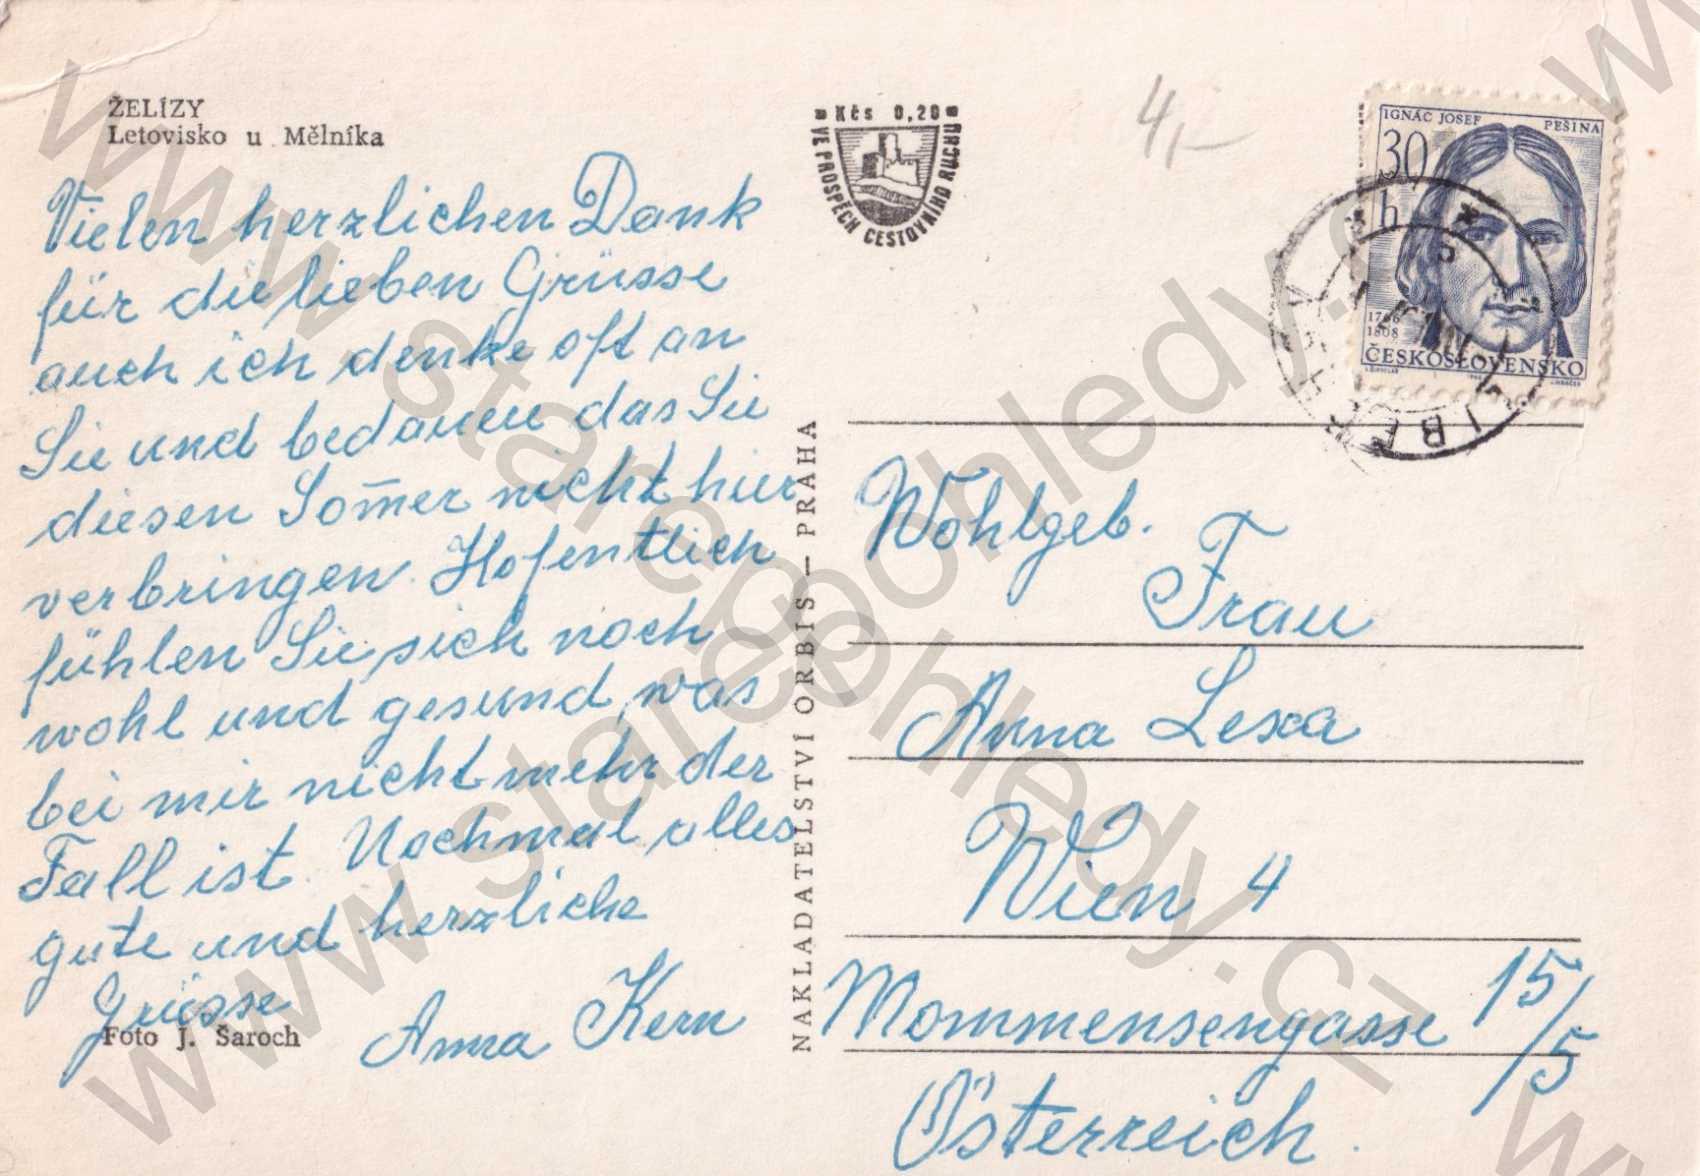 ŽELÍZY
Letovisko u Mělníka
Vielen herzlichen Dank
für die lieben Grüsse
auch ich denke oft an
Sie und bedauen das Sie
diesen Som̄er nicht hier
verbringen. Hofentlich
fühlen Sie sich noch
wohl und gesund, was
bei mir nicht mehr der
Fall ist. Nochmal alles
gute und herzliche
Grüsse
Anna Kern
Foto J. Šaroch
NAKLADATELSTVÍ ORBIS — PRAHA
Kčs 0,20
VE PROSPĚCH CESTOVNÍHO RUCHU
4,-
IGNÁC JOSEF PEŠINA
30 h
1766
1808
ČESKOSLOVENSKO
Wohlgeb.
Frau
Anna Lexa
Wien 4
Mommsengasse 15/5
Österreich.
www.starepohledy.cz
www.starepohledy.cz